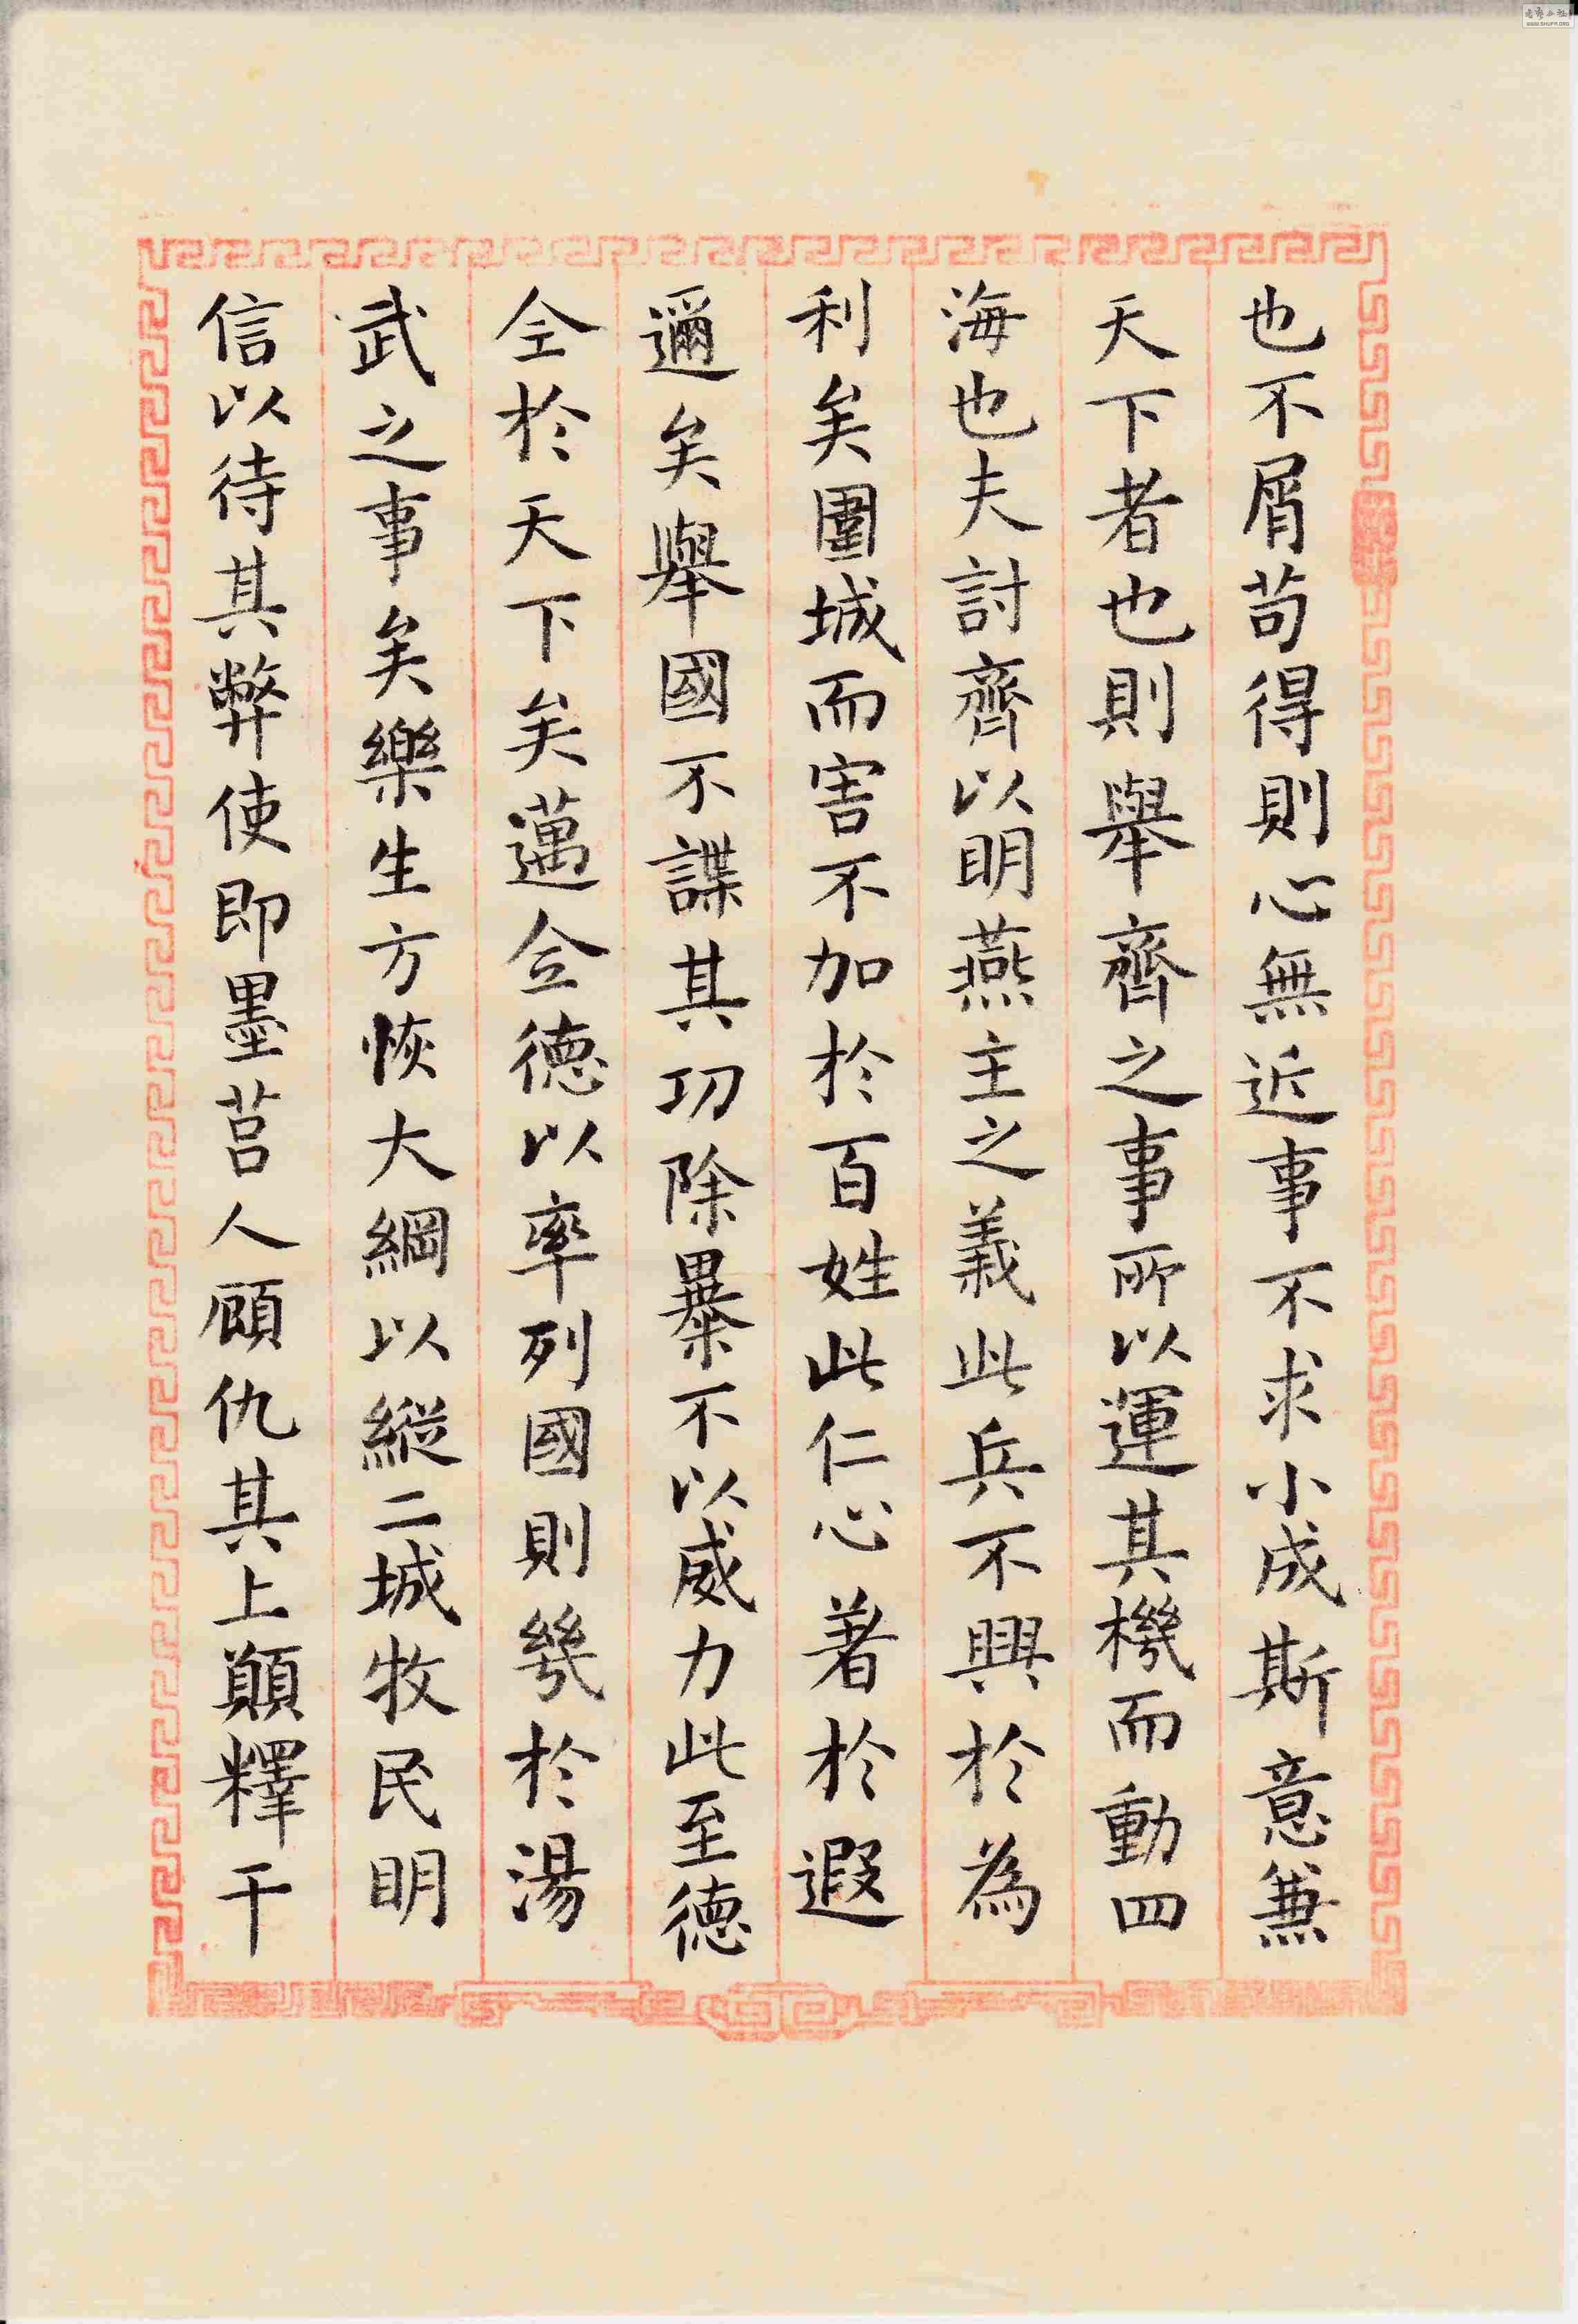 也不屑苟得則心無近事不求小成斯意兼
天下者也則舉齊之事所以運其機而動四
海也夫討齊以明燕主之義此兵不興於為
利矣圍城而害不加於百姓此仁心著於遐
邇矣舉國不謀其功除暴不以威力此至德
全於天下矣邁全德以率列國則幾於湯
武之事矣樂生方恢大綱以縱二城牧民明
信以待其弊使即墨莒人顧仇其上願釋干
WWW.SHUFA.ORG